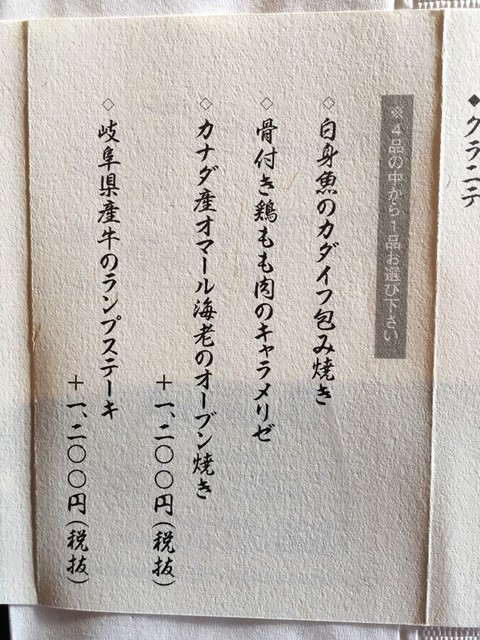 ◆クラニテ
※4品の中から1品お選び下さい
◇白身魚のカダイフ包み焼き
◇骨付き鶏もも肉のキャラメリゼ
◇カナダ産オマール海老のオーブン焼き
＋一、二〇〇円(税抜)
◇岐阜県産牛のランプステーキ
＋一、二〇〇円(税抜)